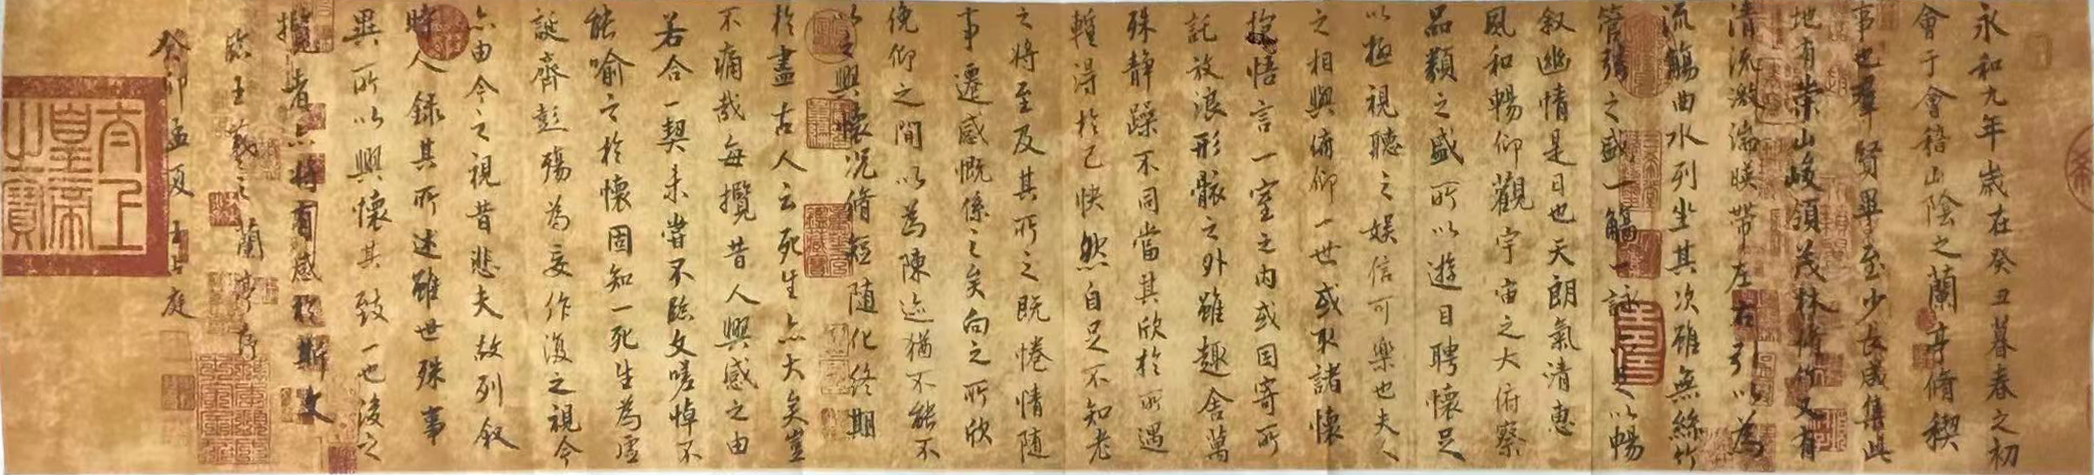 永和九年歲在癸丑暮春之初
會于會稽山陰之蘭亭脩稧
事也羣賢畢至少長咸集此
地有崇山峻領茂林脩竹又有
清流激湍暎帶左右引以為
流觴曲水列坐其次雖無絲竹
管弦之盛一觴一詠以暢
叙幽情是日也天朗氣清惠
風和暢仰觀宇宙之大俯察
品類之盛所以遊目騁懷足
以極視聽之娛信可樂也夫人
之相與俯仰一世或取諸懷
抱悟言一室之內或因寄所
託放浪形骸之外雖趣舍萬
殊靜躁不同當其欣於所遇
蹔得於己快然自足不知老
之將至及其所之既惓情隨
事遷感慨係之矣向之所欣
俛仰之間以為陳迹猶不能不
以之興懷況脩短隨化終期
於盡古人云死生亦大矣豈
不痛哉每攬昔人興感之由
若合一契未嘗不臨文嗟悼不
能喻之於懷固知一死生為虛
誕齊彭殤為妄作後之視今
亦由今之視昔悲夫故列叙
時人錄其所述雖世殊事
異所以興懷其致一也後之
攬者亦將有感於斯文
臨王羲之蘭亭序
癸卯孟夏
太上皇帝之寶